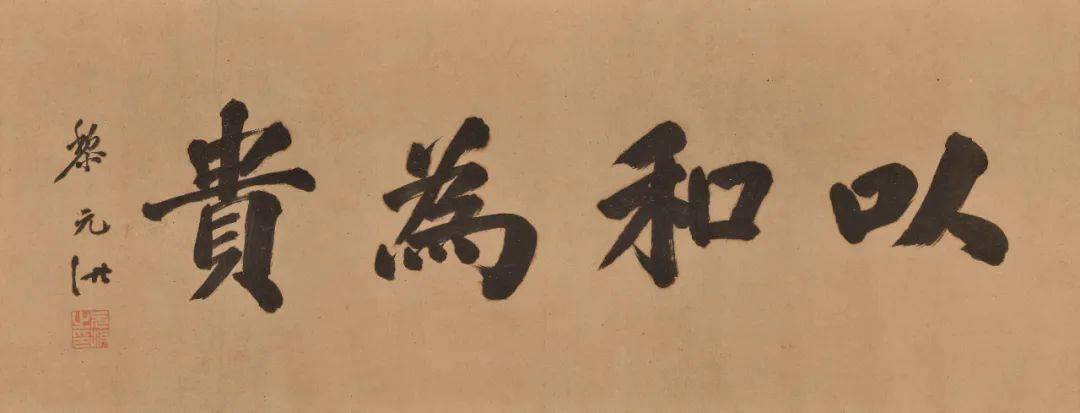 以和為貴
黎元洪